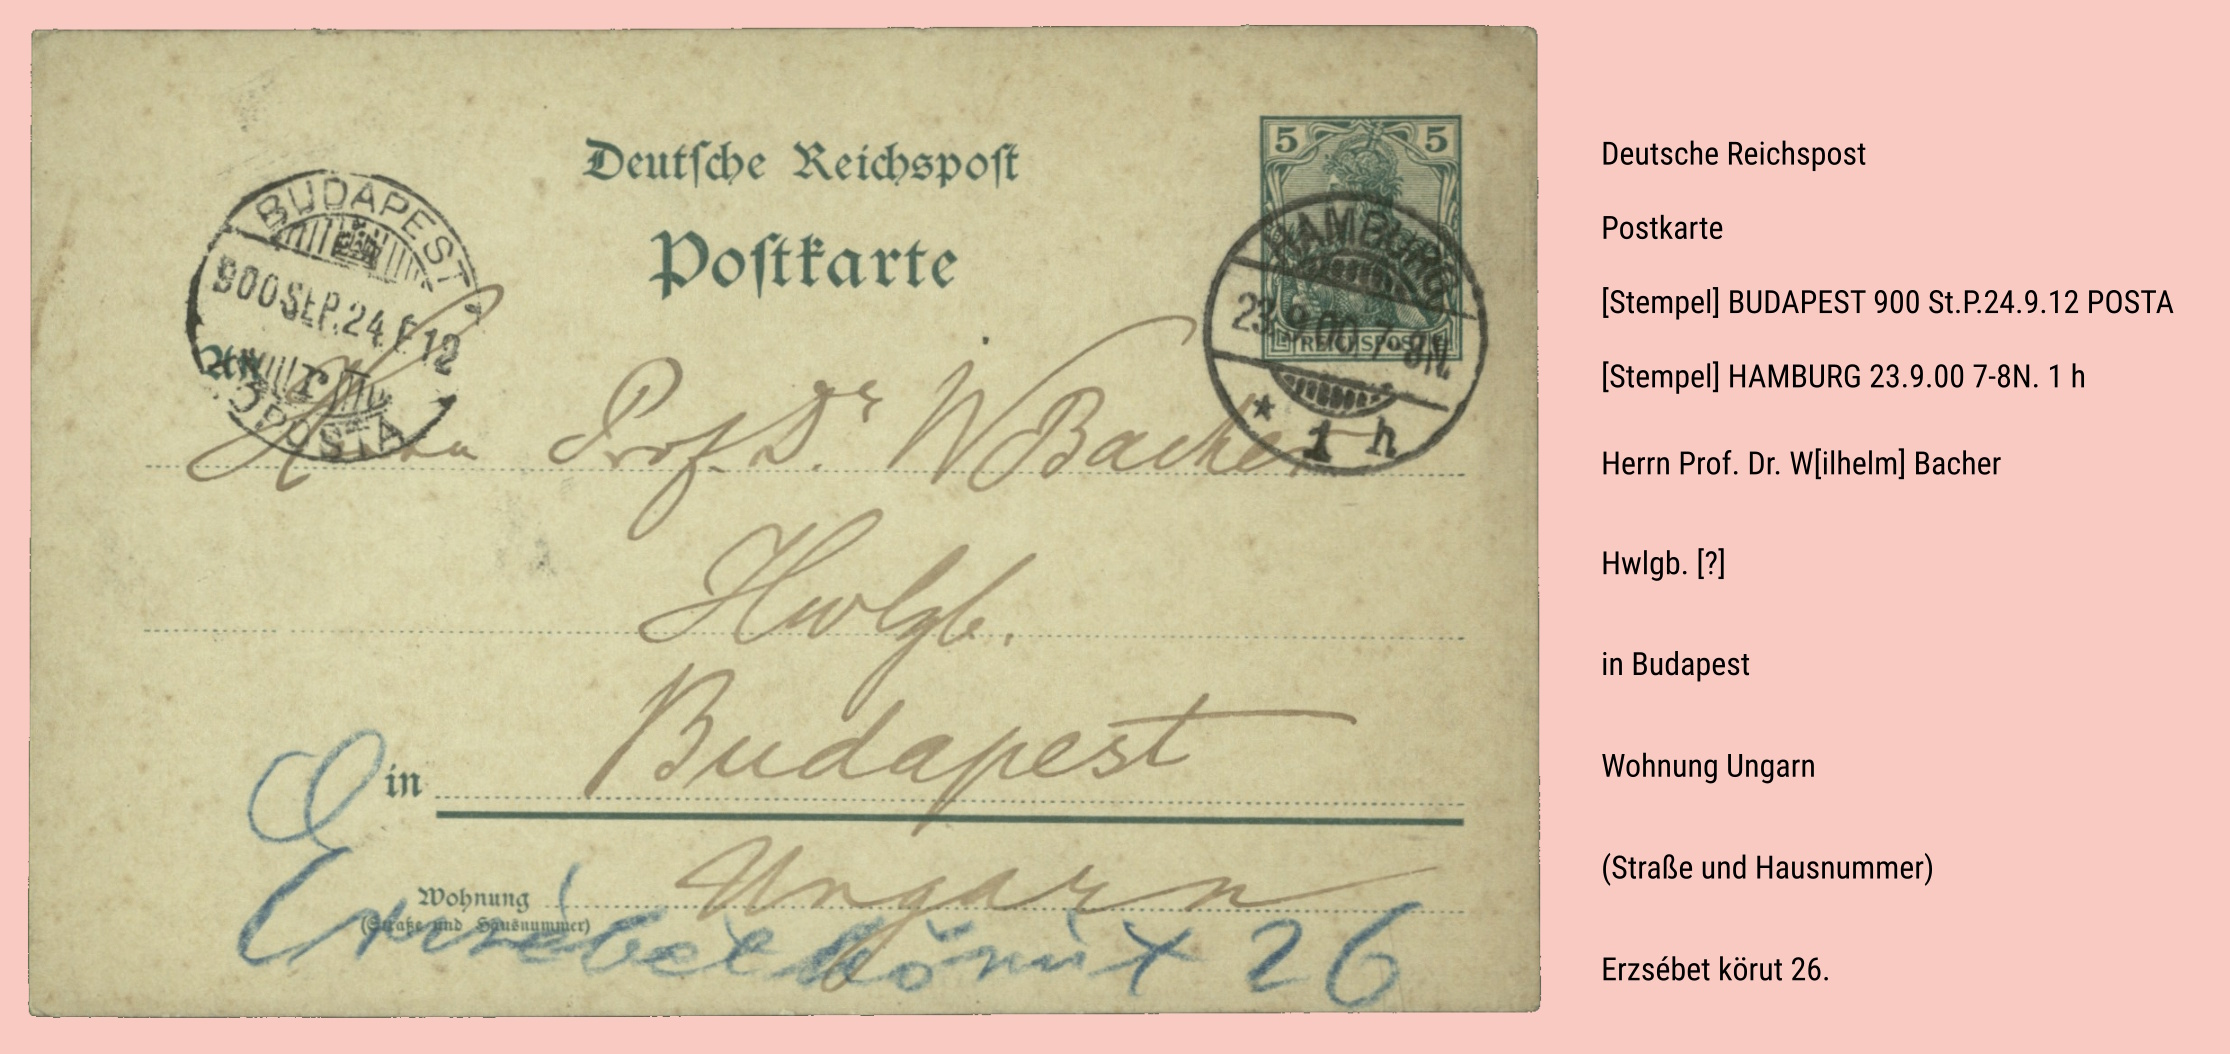 Deutsche Reichspost
Postkarte
5 5
REICHSPOST
BUDAPEST
900 SEP. 24. E 12
POSTA
HAMBURG
23.9.00. 7-8N.
* 1 h
An
Herrn Prof. Dr. W Bacher
Hwlgb.
in Budapest
Wohnung Ungarn
(Straße und Hausnummer)
Erzsébet körút 26
Deutsche Reichspost
Postkarte
[Stempel] BUDAPEST 900 St.P.24.9.12 POSTA
[Stempel] HAMBURG 23.9.00 7-8N. 1 h
Herrn Prof. Dr. W[ilhelm] Bacher
Hwlgb. [?]
in Budapest
Wohnung Ungarn
(Straße und Hausnummer)
Erzsébet körut 26.